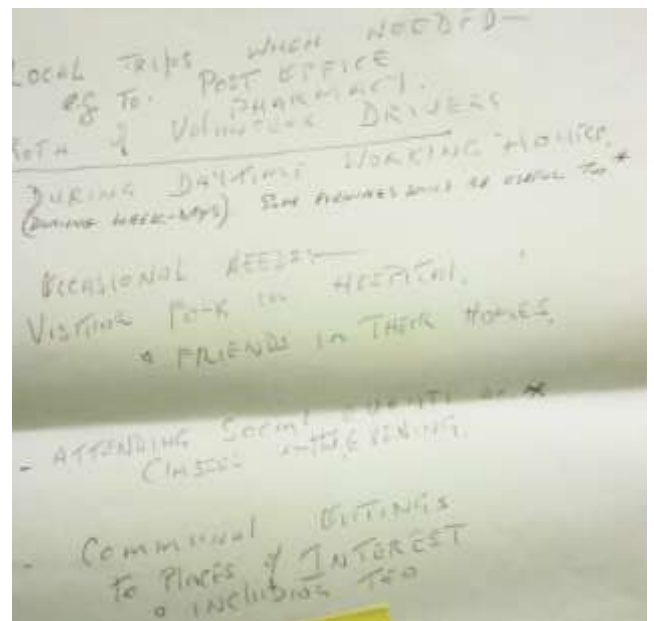 LOCAL TRIPS WHEN NEEDED—
eg TO. POST OFFICE
PHARMACY.
ROTA of VOLUNTEER DRIVERS
DURING DAYTIME WORKING HOURS.
(DURING WEEK-DAYS) SOME EVENINGS WOULD BE USEFUL TOO *
OCCASIONAL NEEDS:—
VISTING FOLK in HOSPITAL,
& FRIENDS in THEIR HOMES,
- ATTENDING SOCIAL EVENTS OR *
CLASSES in THE EVENING.
- COMMUNAL OUTINGS
To PLACES of INTEREST
INCLUDING TEA